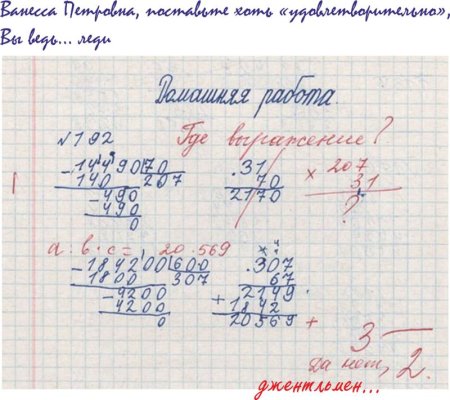 Ванесса Петровна, поставьте хоть «удовлетворительно»,
Вы ведь... леди
Домашняя работа.
№192 Где выражение?
-14490 70 .31 × 207
140 207 70 31
-490 2170 ?
490
0
a : b · c = 20 569
-184200 600 .307
1800 307 67
-4200 2149
4200 + 1842
0 20569 +
3 —
да нет, 2.
джентльмен...